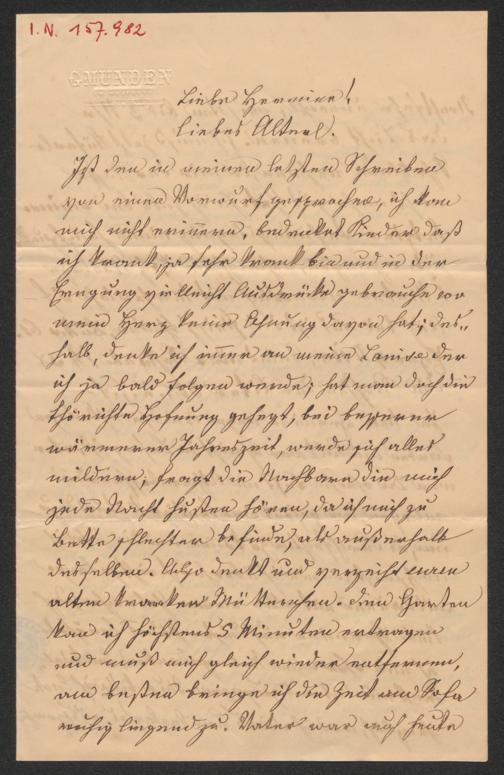 I.N. 157.982
GMUNDEN
Liebe Hermine!
Liebes Alterl.
Ist den in meinen letzten Schreiben
von einen Vorwurf gesprochen, ich kan
mich nicht erinnern, bedenket Kinder daß
ich krank, ja sehr krank bin und in der
Erregung vielleicht Ausdrücke gebrauche wo
mein Herz keine Ahnung davon hat; des-
halb, denke ich immer an meine Louise der
ich ja bald folgen werde; hat man doch die
thörichte Hofnung gehegt, bei besserer
wärmerer Jahreszeit, werde sich alles
mildern, fragt die Nachbarn die mich
jede Nacht husten hören, da ich mich zu
Bette schlechter befinde, als außerhalb
desselben. Also denkt und verzeiht euren
alten kranken Mütterchen. Den Garten
kan ich höchstens 5 Minuten ertragen
und muß mich gleich wieder entfernen,
am besten bringe ich die Zeit am Sofa
ruhig liegend zu. Vater war auch heute